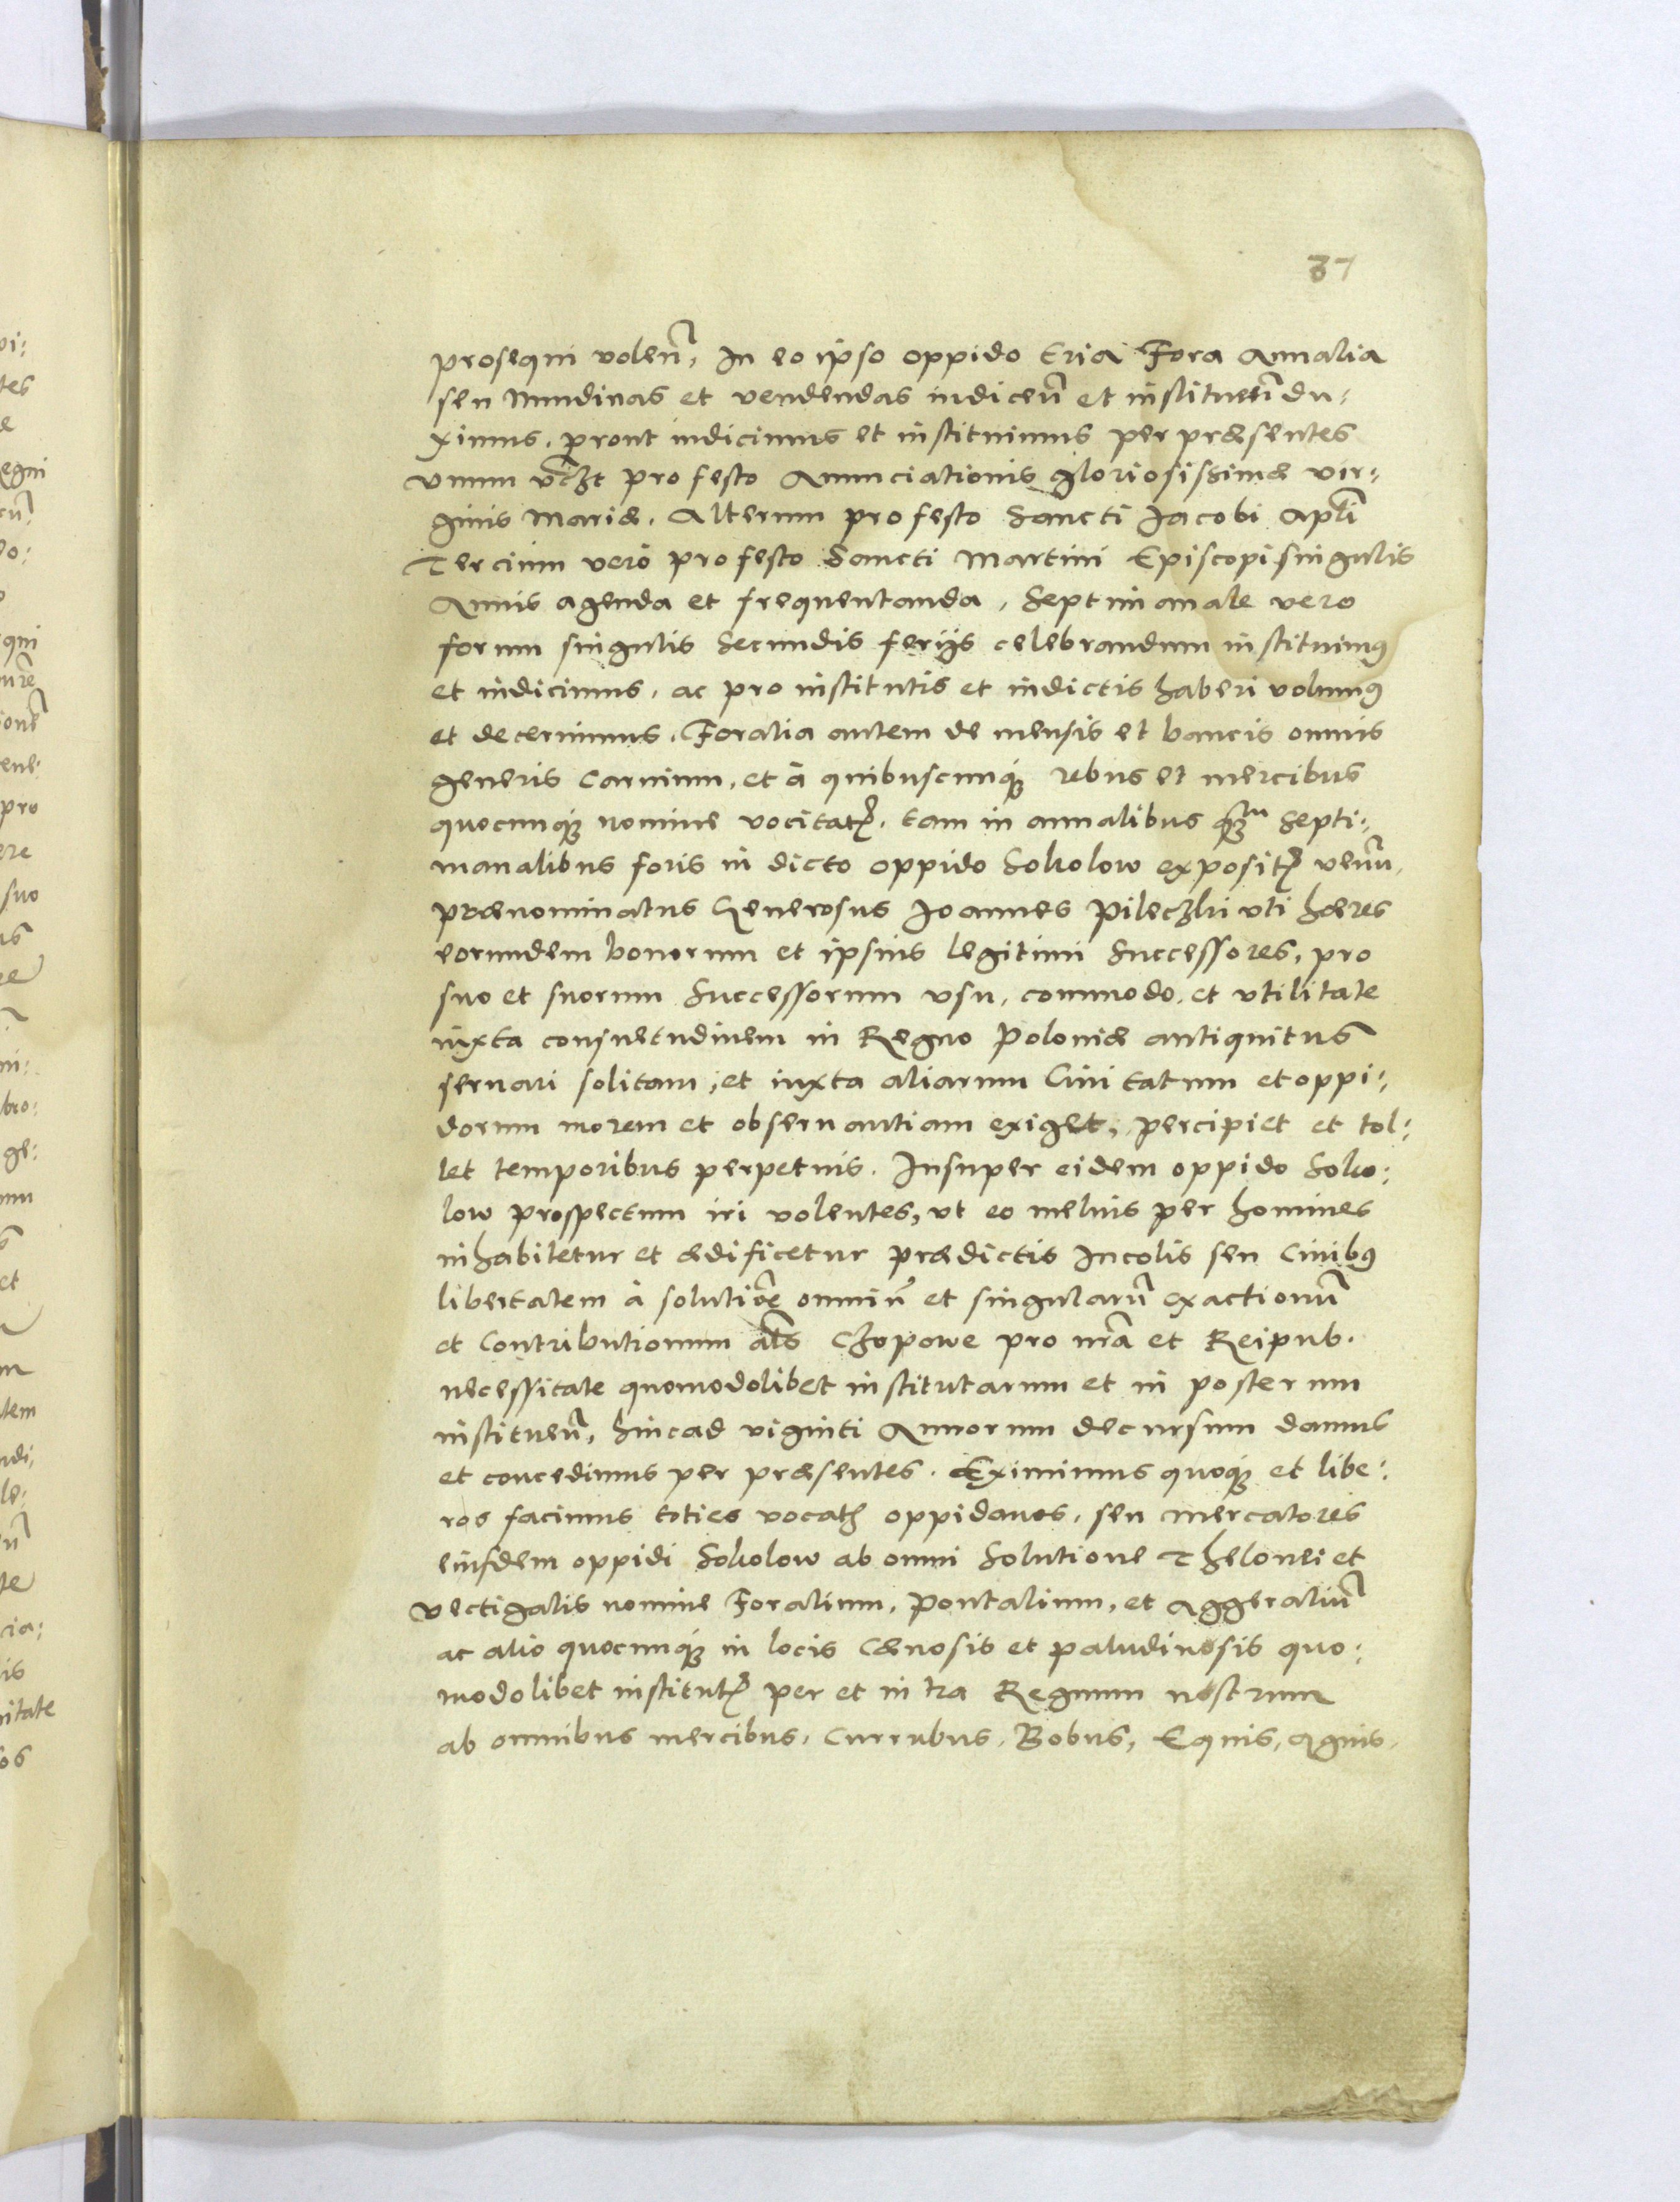 37
prosequi volen̄, In eo ipso oppido tria Fora Annalia
seu Nundinas et vendendas indicen̄ et instituen̄ du:
ximus, prout indicimus et instituimus per præsentes
vnum vƺt pro festo Annunciationis gloriosissimæ vir:
ginis Mariæ. Alterum pro festo Sancti Jacobi Apli
Tercium vero pro festo Sancti Martini Episcopi singulis
Annis agenda et frequentanda, Septimanale vero
forum singulis Secundis ferijs celebrandum instituimus
et indicimus, ac pro institutis et indictis haberi volumus
et decernimus. Foralia autem de mensis et bancis omnis
generis Carnium, et à quibuscunque rebus et mercibus
quocunque nomine vocitatis, tam in annalibus quam in Septi:
manalibus foris in dicto oppido Sokolow expositis venum,
prænominatus Generosus Joannes Pileczki vti hæres
eorundem bonorum et ipsius legitimi Successores, pro
suo et suorum Successorum vsu, commodo, et vtilitate
iuxta consuetudinem in Regno Poloniæ antiquitus
seruari solitam, et iuxta aliarum Ciuitatum et oppi:
dorum morem et obseruantiam exiget, percipiet et tol:
let temporibus perpetuis. Insuper eidem oppido Soko:
low prospectum iri volentes, vt eo melius per homines
inhabitetur et ædificetur prædictis Incolis seu Ciuibus
libertatem à solutiōe omniū et singularū exactionū
et Contributionum als Czopowe pro nr̄a et Reipub.
necessitate quomodolibet institutarum et in posterum
instituen̄, hinc ad viginti Annorum decursum damus
et concedimus per præsentes. Eximimus quoque et libe:
ros facimus toties vocatos oppidanos, seu mercatores
eiusdem oppidi Sokolow ab omni Solutione Thelonei et
vectigalis nomine Foralium, Pontalium, et Aggeraliū
ac alio quocunque in locis Cænosis et paludinosis quo:
modolibet institutis per et intra Regnum nostrum
ab omnibus mercibus, Curribus, Bobus, Equis, Agnis,